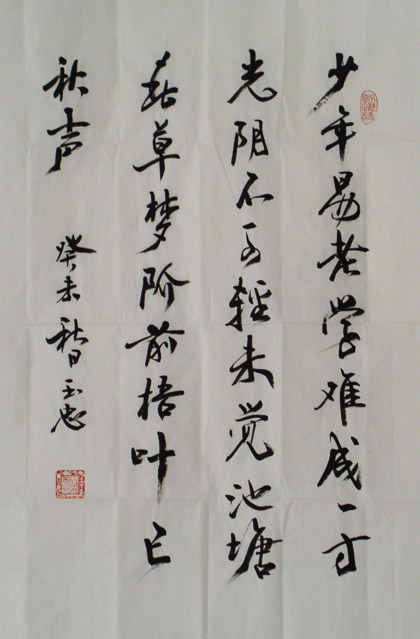 少年易老学难成一寸
光阴不可轻未觉池塘
春草梦阶前梧叶已
秋声
癸未秋日玉忠